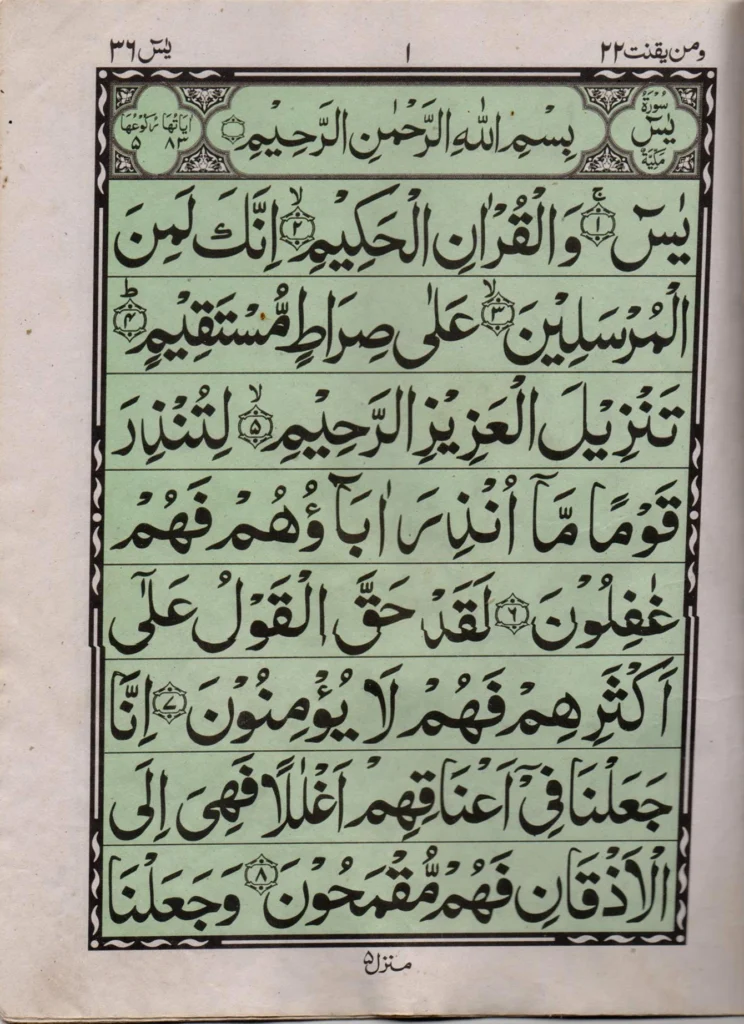 ومن یقنت ۲۲ ۱ یٰسٓ ۳۶
سُوْرَةُ یٰسٓ مَکِّیَّةٌ بِسْمِ اللّٰهِ الرَّحْمٰنِ الرَّحِیْمِ اٰیَاتُهَا ۸۳ رُکُوْعُهَا ۵
یٰسٓ ۚ﴿۱﴾ وَالْقُرْاٰنِ الْحَکِیْمِ ۙ﴿۲﴾ اِنَّکَ لَمِنَ
الْمُرْسَلِیْنَ ۙ﴿۳﴾ عَلٰی صِرَاطٍ مُّسْتَقِیْمٍ ؕ﴿۴﴾
تَنْزِیْلَ الْعَزِیْزِ الرَّحِیْمِ ۙ﴿۵﴾ لِتُنْذِرَ
قَوْمًا مَّاۤ اُنْذِرَ اٰبَآؤُهُمْ فَهُمْ
غٰفِلُوْنَ ﴿۶﴾ لَقَدْ حَقَّ الْقَوْلُ عَلٰۤی
اَکْثَرِهِمْ فَهُمْ لَا یُؤْمِنُوْنَ ﴿۷﴾ اِنَّا
جَعَلْنَا فِیْۤ اَعْنَاقِهِمْ اَغْلٰلًا فَهِیَ اِلَی
الْاَذْقَانِ فَهُمْ مُّقْمَحُوْنَ ﴿۸﴾ وَجَعَلْنَا
منزل ۵